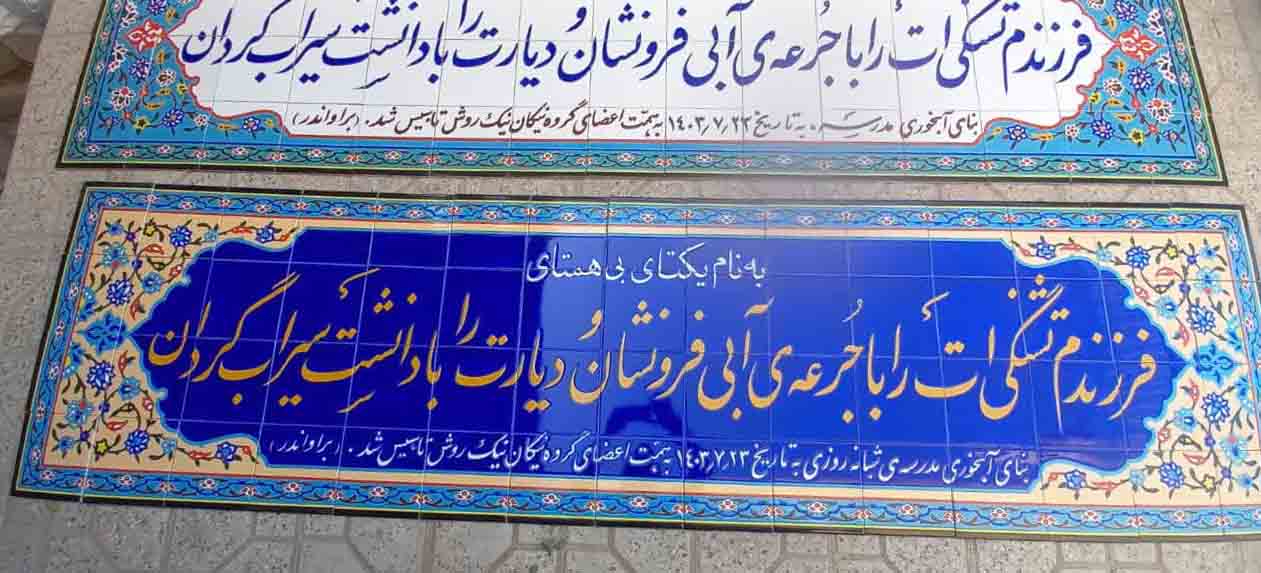 فرزندم تشنگی ات را با جرعه ی آبی فرونشان و دیارت را با دانشت سیراب گردان
بنای آبخوری مدرسه به تاریخ ۱۴۰۳٫۷٫۲۳ به همت اعضای گروه نیکان نیک روش تاسیس شد. (براواندر)
به نام یکتای بی همتای
فرزندم تشنگی ات را با جُرعه ی آبی فرونشان و دیارت را با دانشت سیراب گردان
بنای آبخوری مدرسه ی شبانه روزی به تاریخ ۱۴۰۳٫۷٫۲۳ به همت اعضای گروه نیکان نیک روش تاسیس شد. (براواندر)